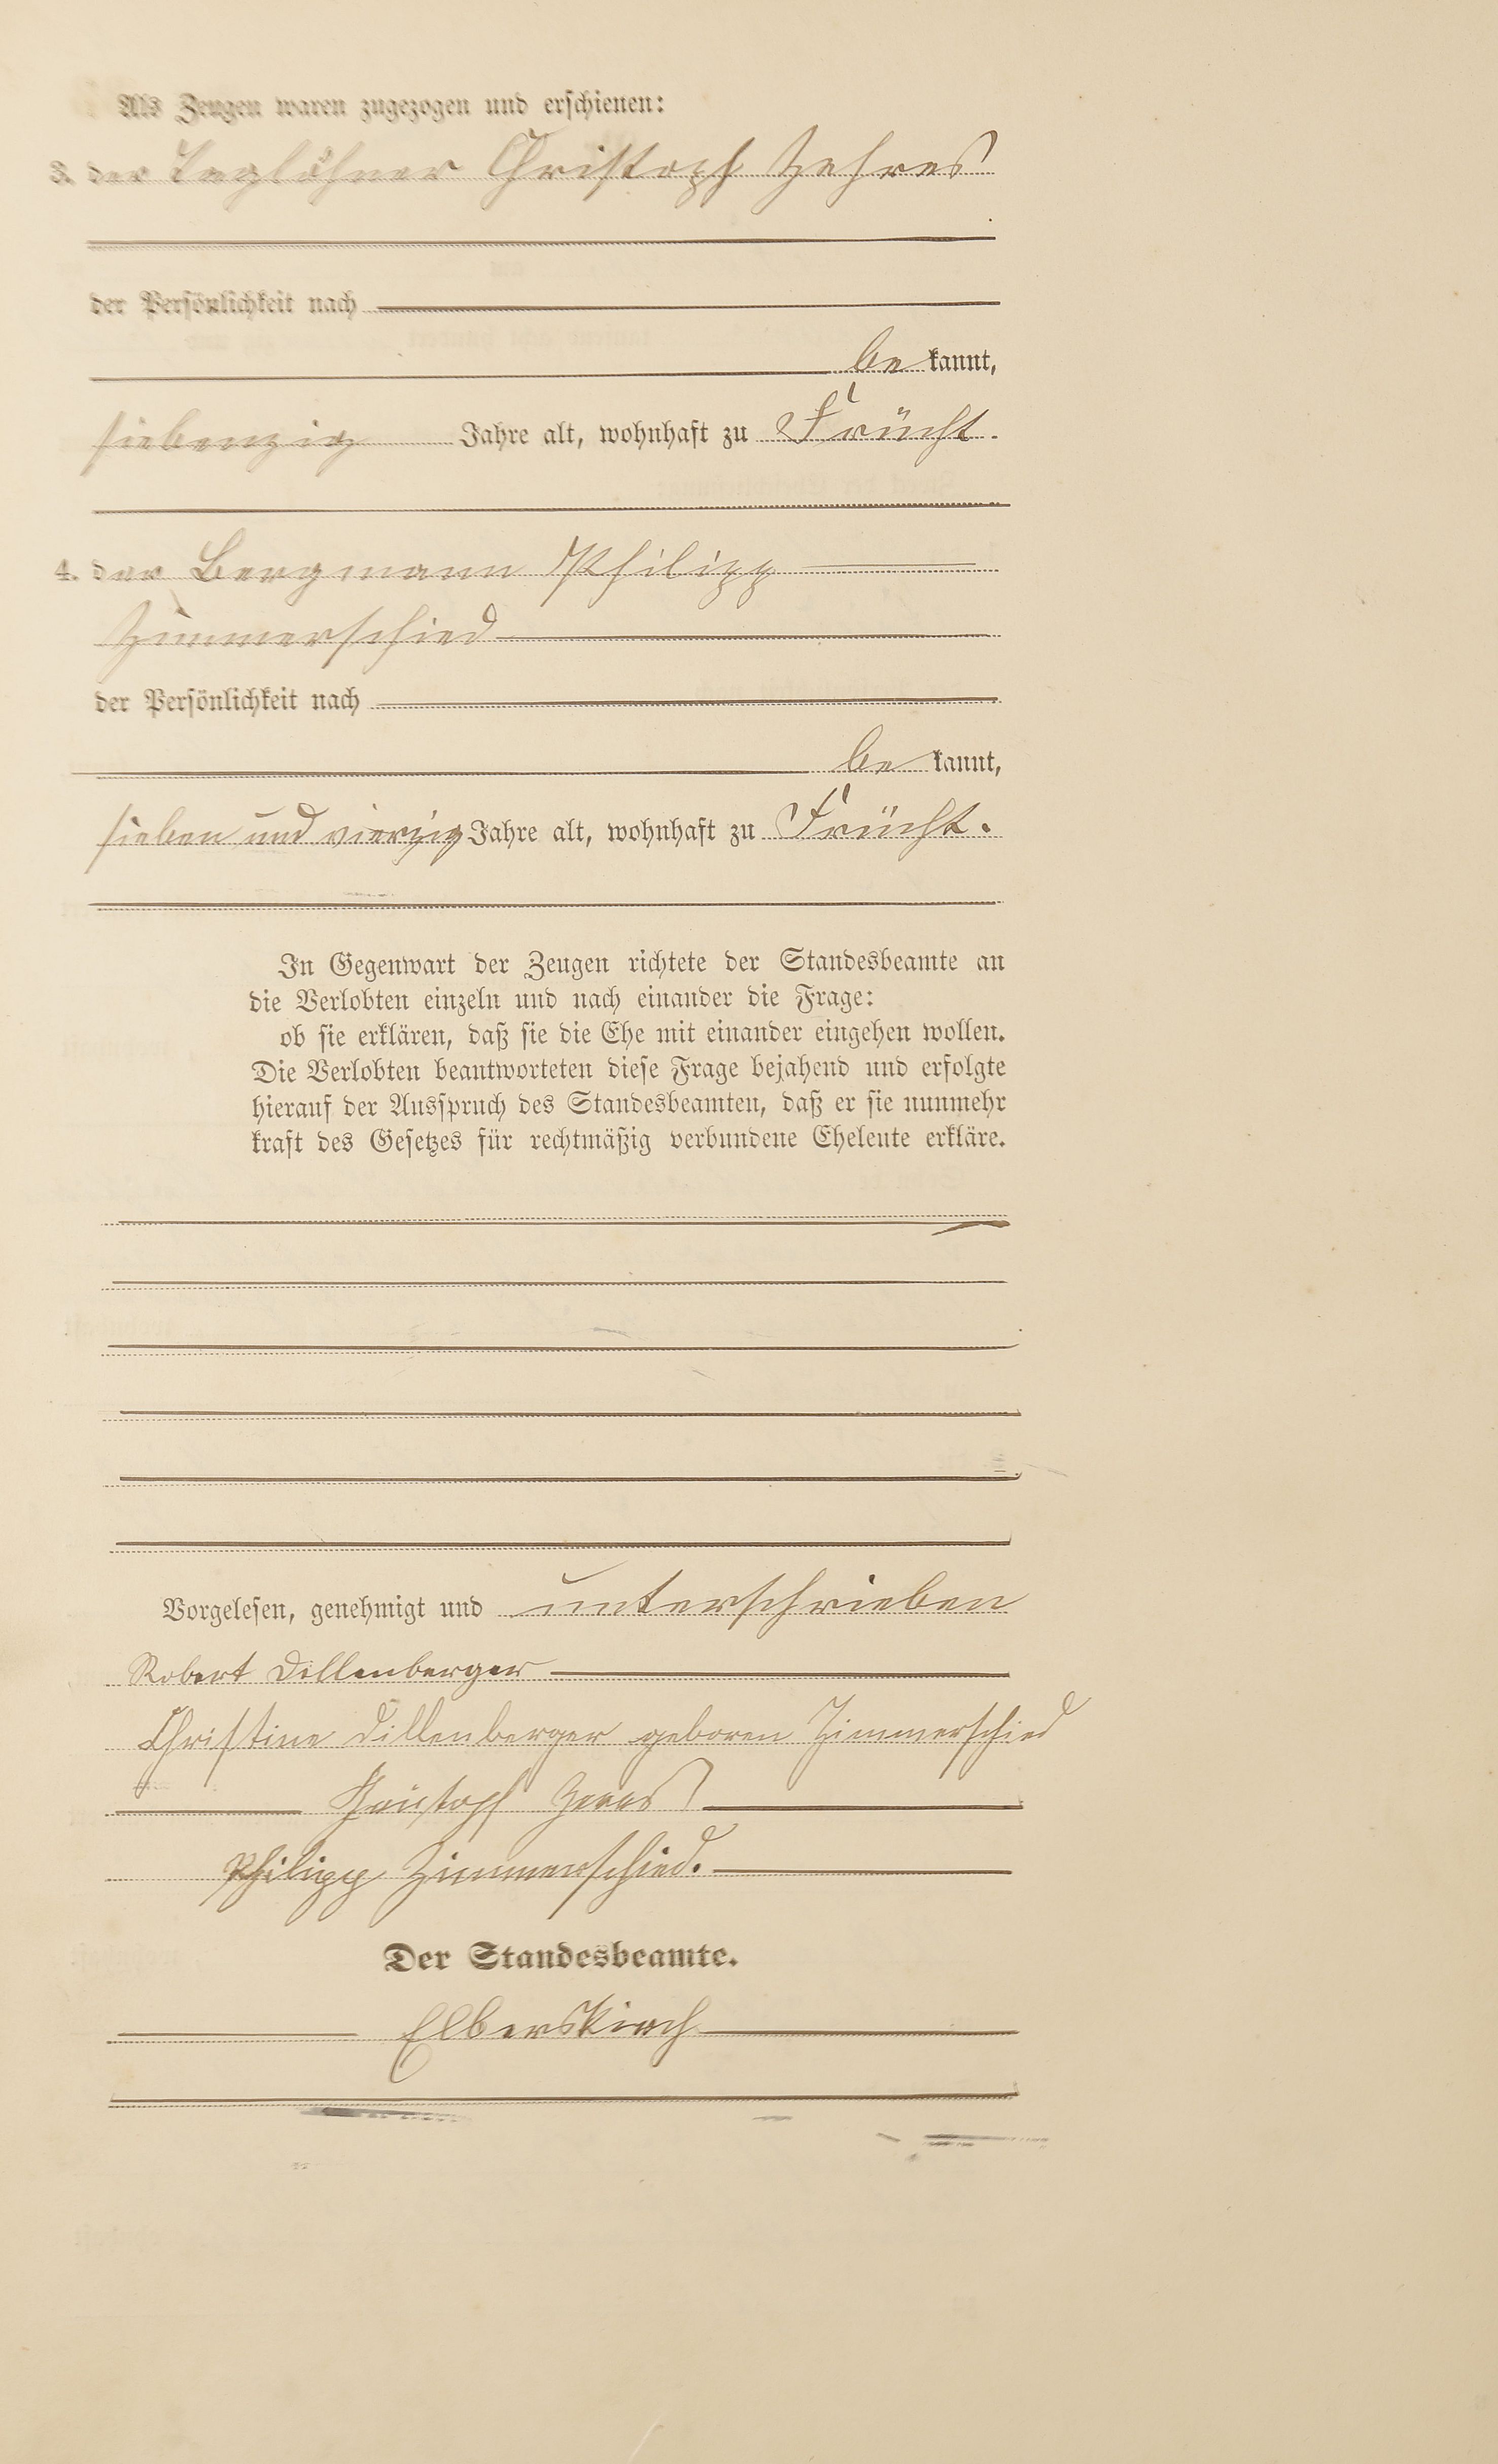 Als Zeugen waren zugezogen und erschienen:
3. der Taglöhner Christoph Zehres
der Persönlichkeit nach
be kannt,
siebenzig Jahre alt, wohnhaft zu Frücht.
4. der Bergmann Philipp
Zimmerschied
der Persönlichkeit nach
be kannt,
sieben und vierzig Jahre alt, wohnhaft zu Frücht.
In Gegenwart der Zeugen richtete der Standesbeamte an
die Verlobten einzeln und nach einander die Frage:
ob sie erklären, daß sie die Ehe mit einander eingehen wollen.
Die Verlobten beantworteten diese Frage bejahend und erfolgte
hierauf der Ausspruch des Standesbeamten, daß er sie nunmehr
kraft des Gesetzes für rechtmäßig verbundene Eheleute erkläre.
Vorgelesen, genehmigt und unterschrieben
Robert Dillenberger
Christine Dillenberger geboren Zimmerschied
Christoph Zeres
Philipp Zimmerschied.
Der Standesbeamte.
Elberskirch